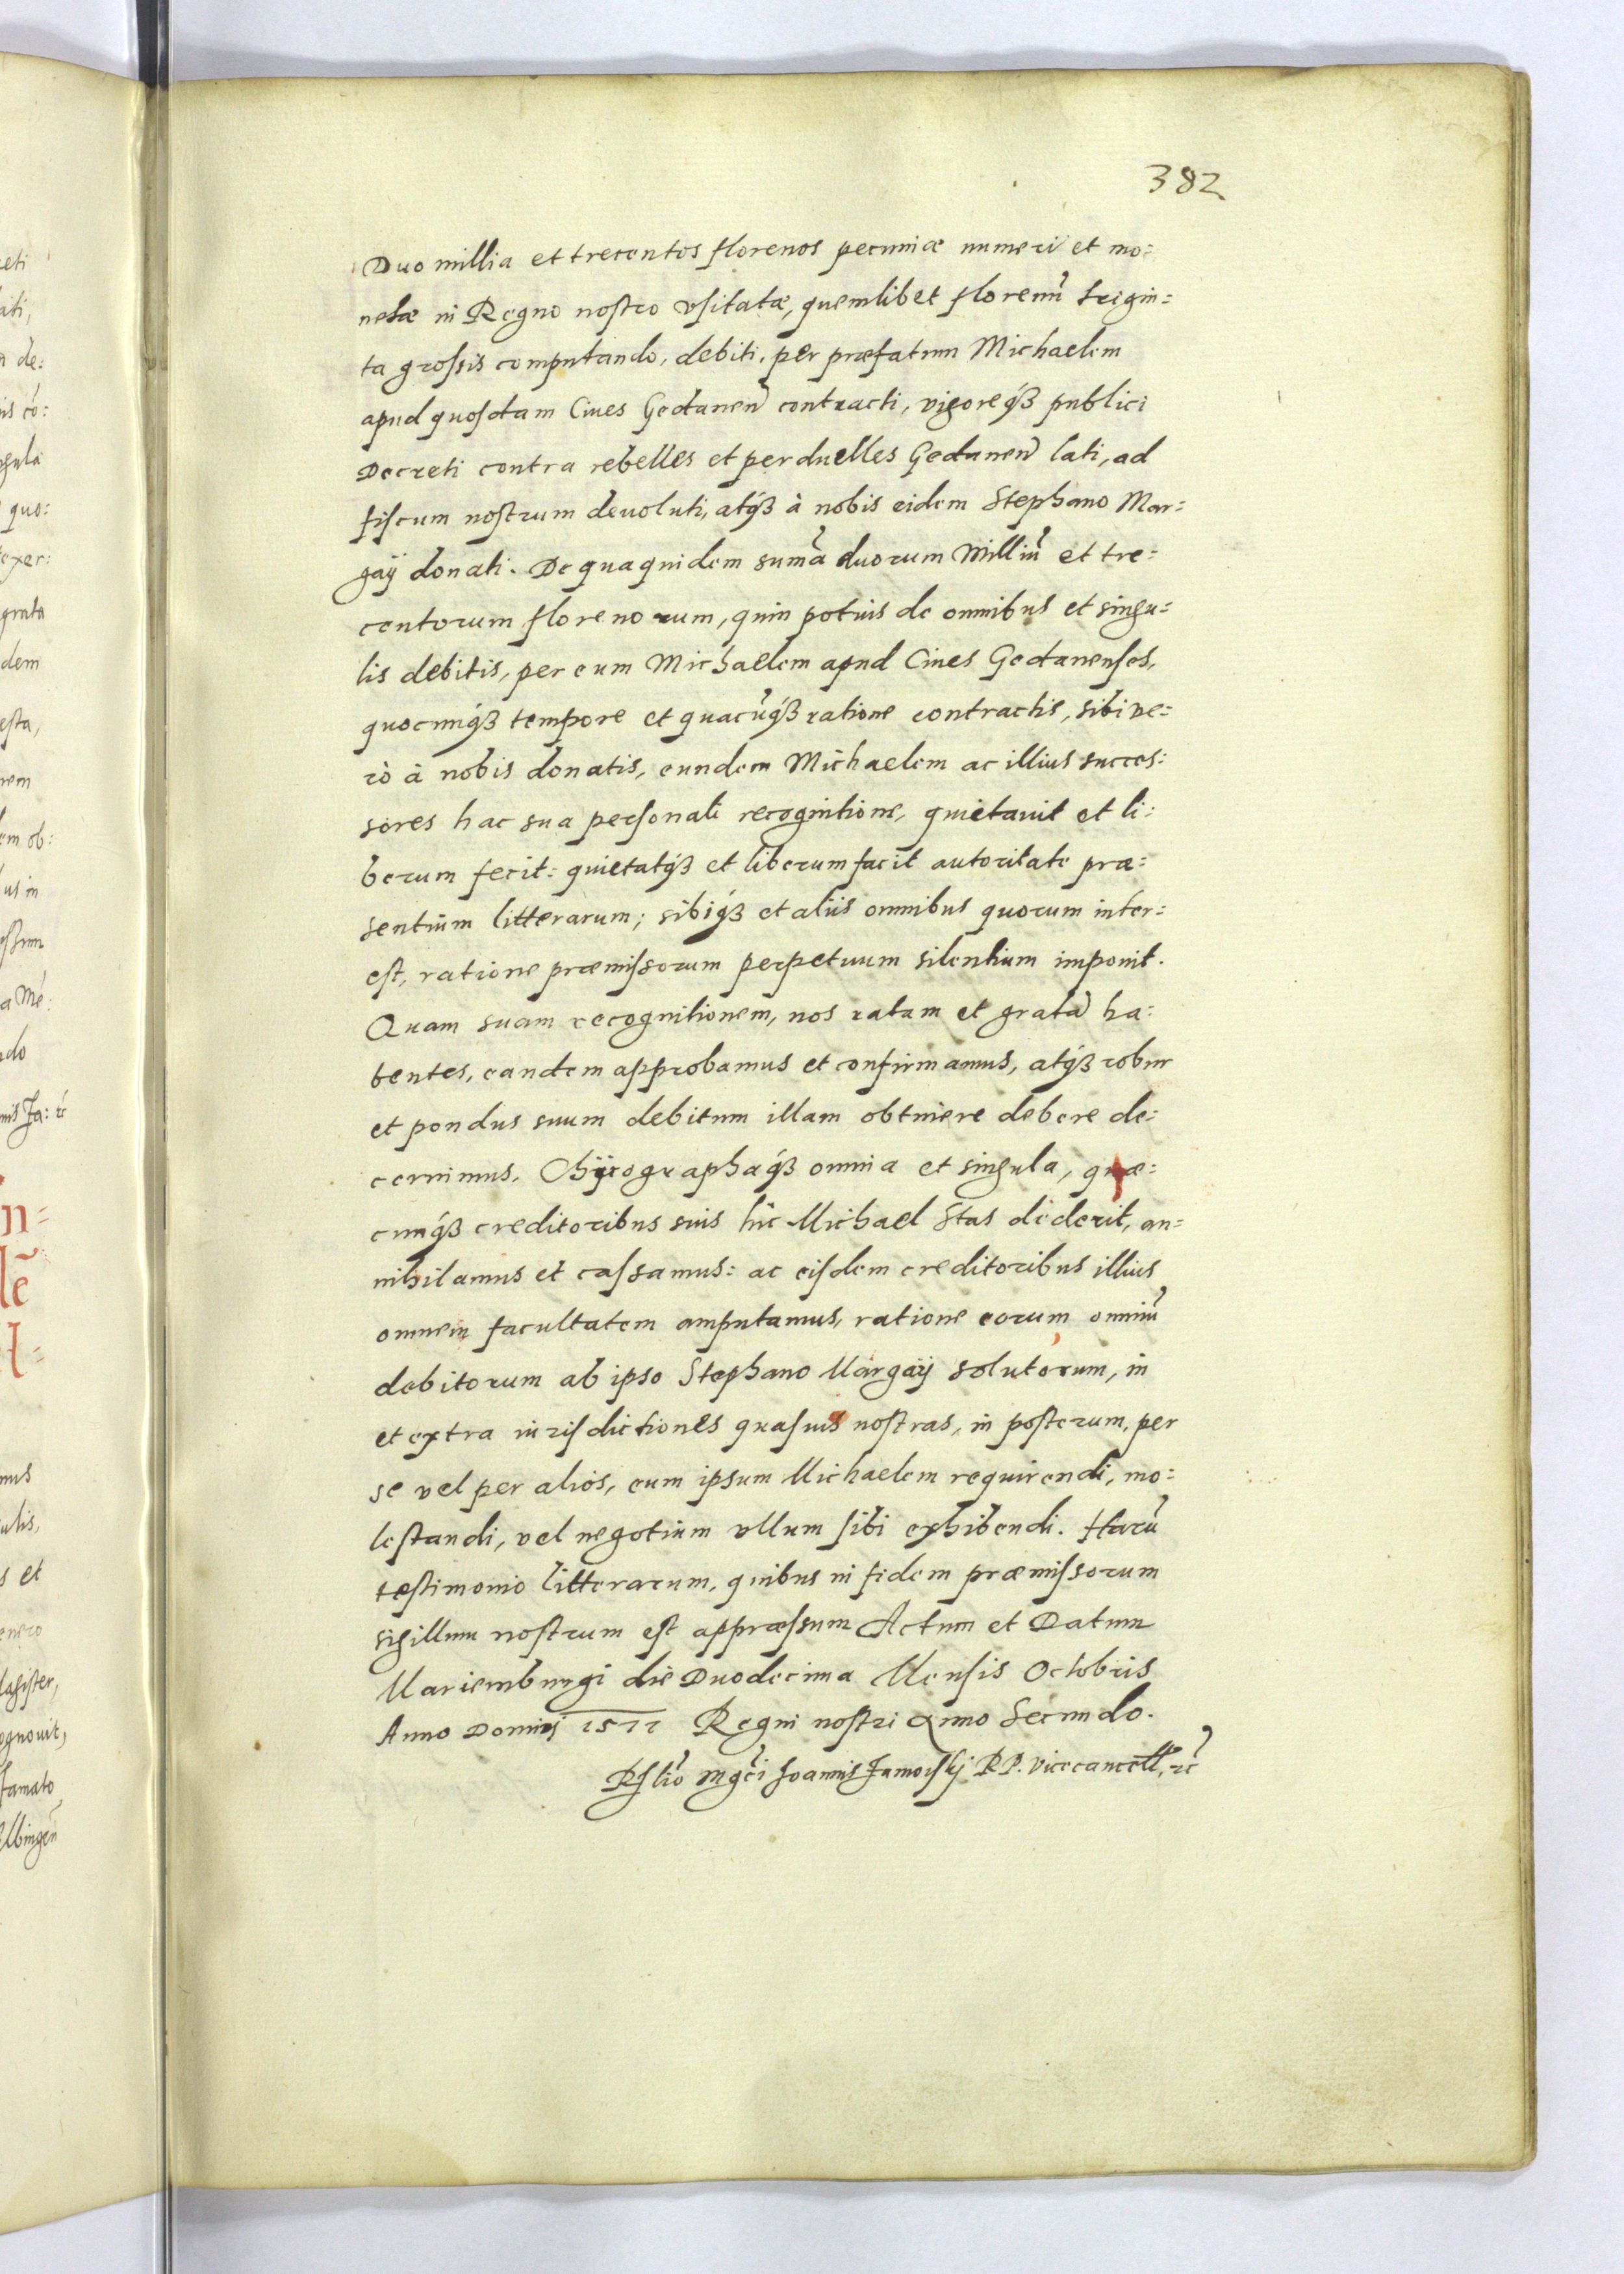 382
Duo millia et trecentos florenos pecuniæ numeri et mo:
netæ in Regno nostro vsitatæ, quemlibet florenũ trigin:
ta grossis computando, debiti, per præfatum Michaelem
apud quosdam Ciues Gedanen̄ contracti, vigoreq́ꝫ publici
Decreti contra rebelles et perduelles Gedanen̄ lati, ad
fiscum nostrum deuoluti, atq́ꝫ à nobis eidem Stephano Mar:
gaÿ donati. De quaquidem sum̃a duorum Milliũ et tre:
centorum florenorum, quin potius de omnibus et singu:
lis debitis, per eum Michaelem apud Ciues Gedanenses,
quocunq́ꝫ tempore et quacũq́ꝫ ratione contractis, sibi ve:
rò à nobis donatis, eundem Michaelem ac illius succes:
sores hac sua personali recognitione, quietauit et li:
berum fecit: quietatq́ꝫ et liberum facit autoritate præ:
sentium litterarum; sibiq́ꝫ et aliis omnibus quorum inter:
est, ratione præmissorum perpetuum silentium imponit.
Quam suam recognitionem, nos ratam et gratã ha:
bentes, eandem approbamus et confirmamus, atq́ꝫ robur
et pondus suum debitum illam obtinere debere de:
cernimus. Chÿrographaq́ꝫ omnia et singula, quæ:
cunq́ꝫ creditoribus suis hic Michael Stas dederit, an:
nihilamus et cassamus: ac eisdem creditoribus illius
omnem facultatem amputamus, ratione eorum omniũ
debitorum ab ipso Stephano Margaÿ solutorum, in
et extra iurisdictiones quasuis nostras, in posterum, per
se vel per alios, eum ipsum Michaelem requirendi, mo:
lestandi, vel negotium vllum sibi exhibendi. Harũ
testimonio litterarum, quibus in fidem præmissorum
sigillum nostrum est appræssum Actum et Datum
Mariemburgi die Duodecima Mensis Octobris
Anno Domini 1577 Regni nostri anno Secundo.
Rĩlio Mgc̃i Joannis Zamoisky RP. Vicecancell, ꝛc̃